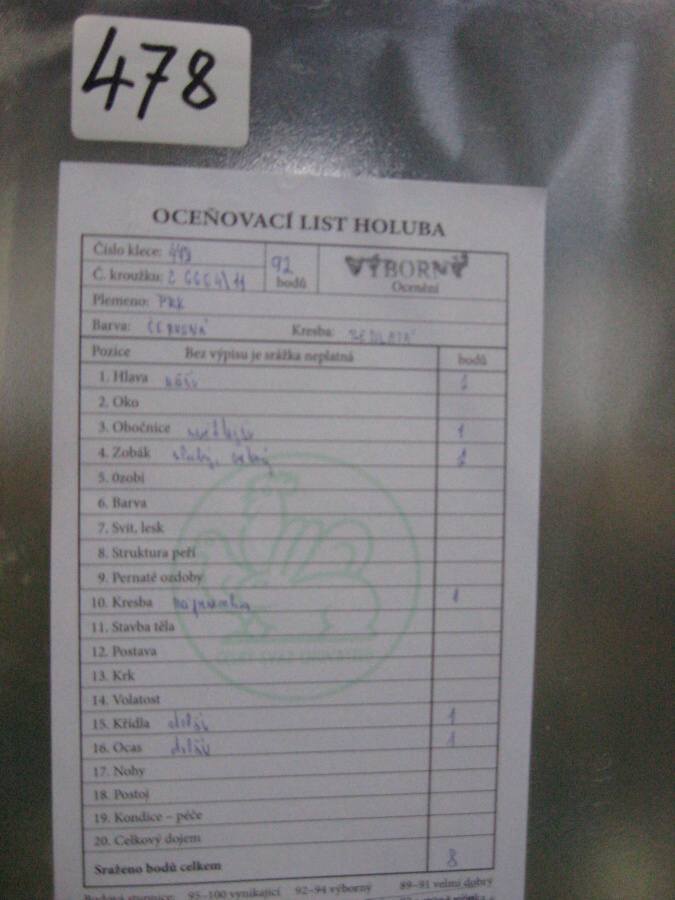 478
OCEŇOVACÍ LIST HOLUBA
Číslo klece: 478
92 bodů
VÝBORNÝ
Ocenění
Č. kroužku:
Plemeno:
Barva: ČERVENÁ Kresba: SEDLATÁ
Pozice Bez výpisu je srážka neplatná bodů
1. Hlava
2. Oko
3. Obočnice 1
4. Zobák
5. Ozobí
6. Barva
7. Svit, lesk
8. Struktura peří
9. Pernaté ozdoby
10. Kresba 1
11. Stavba těla
12. Postava
13. Krk
14. Volatost
15. Křídla delší 1
16. Ocas delší 1
17. Nohy
18. Postoj
19. Kondice – péče
20. Celkový dojem
Sraženo bodů celkem 8
Bodová stupnice: 95–100 vynikající 92–94 výborný 89–91 velmi dobrý
ČESKÝ SVAZ CHOVATELŮ